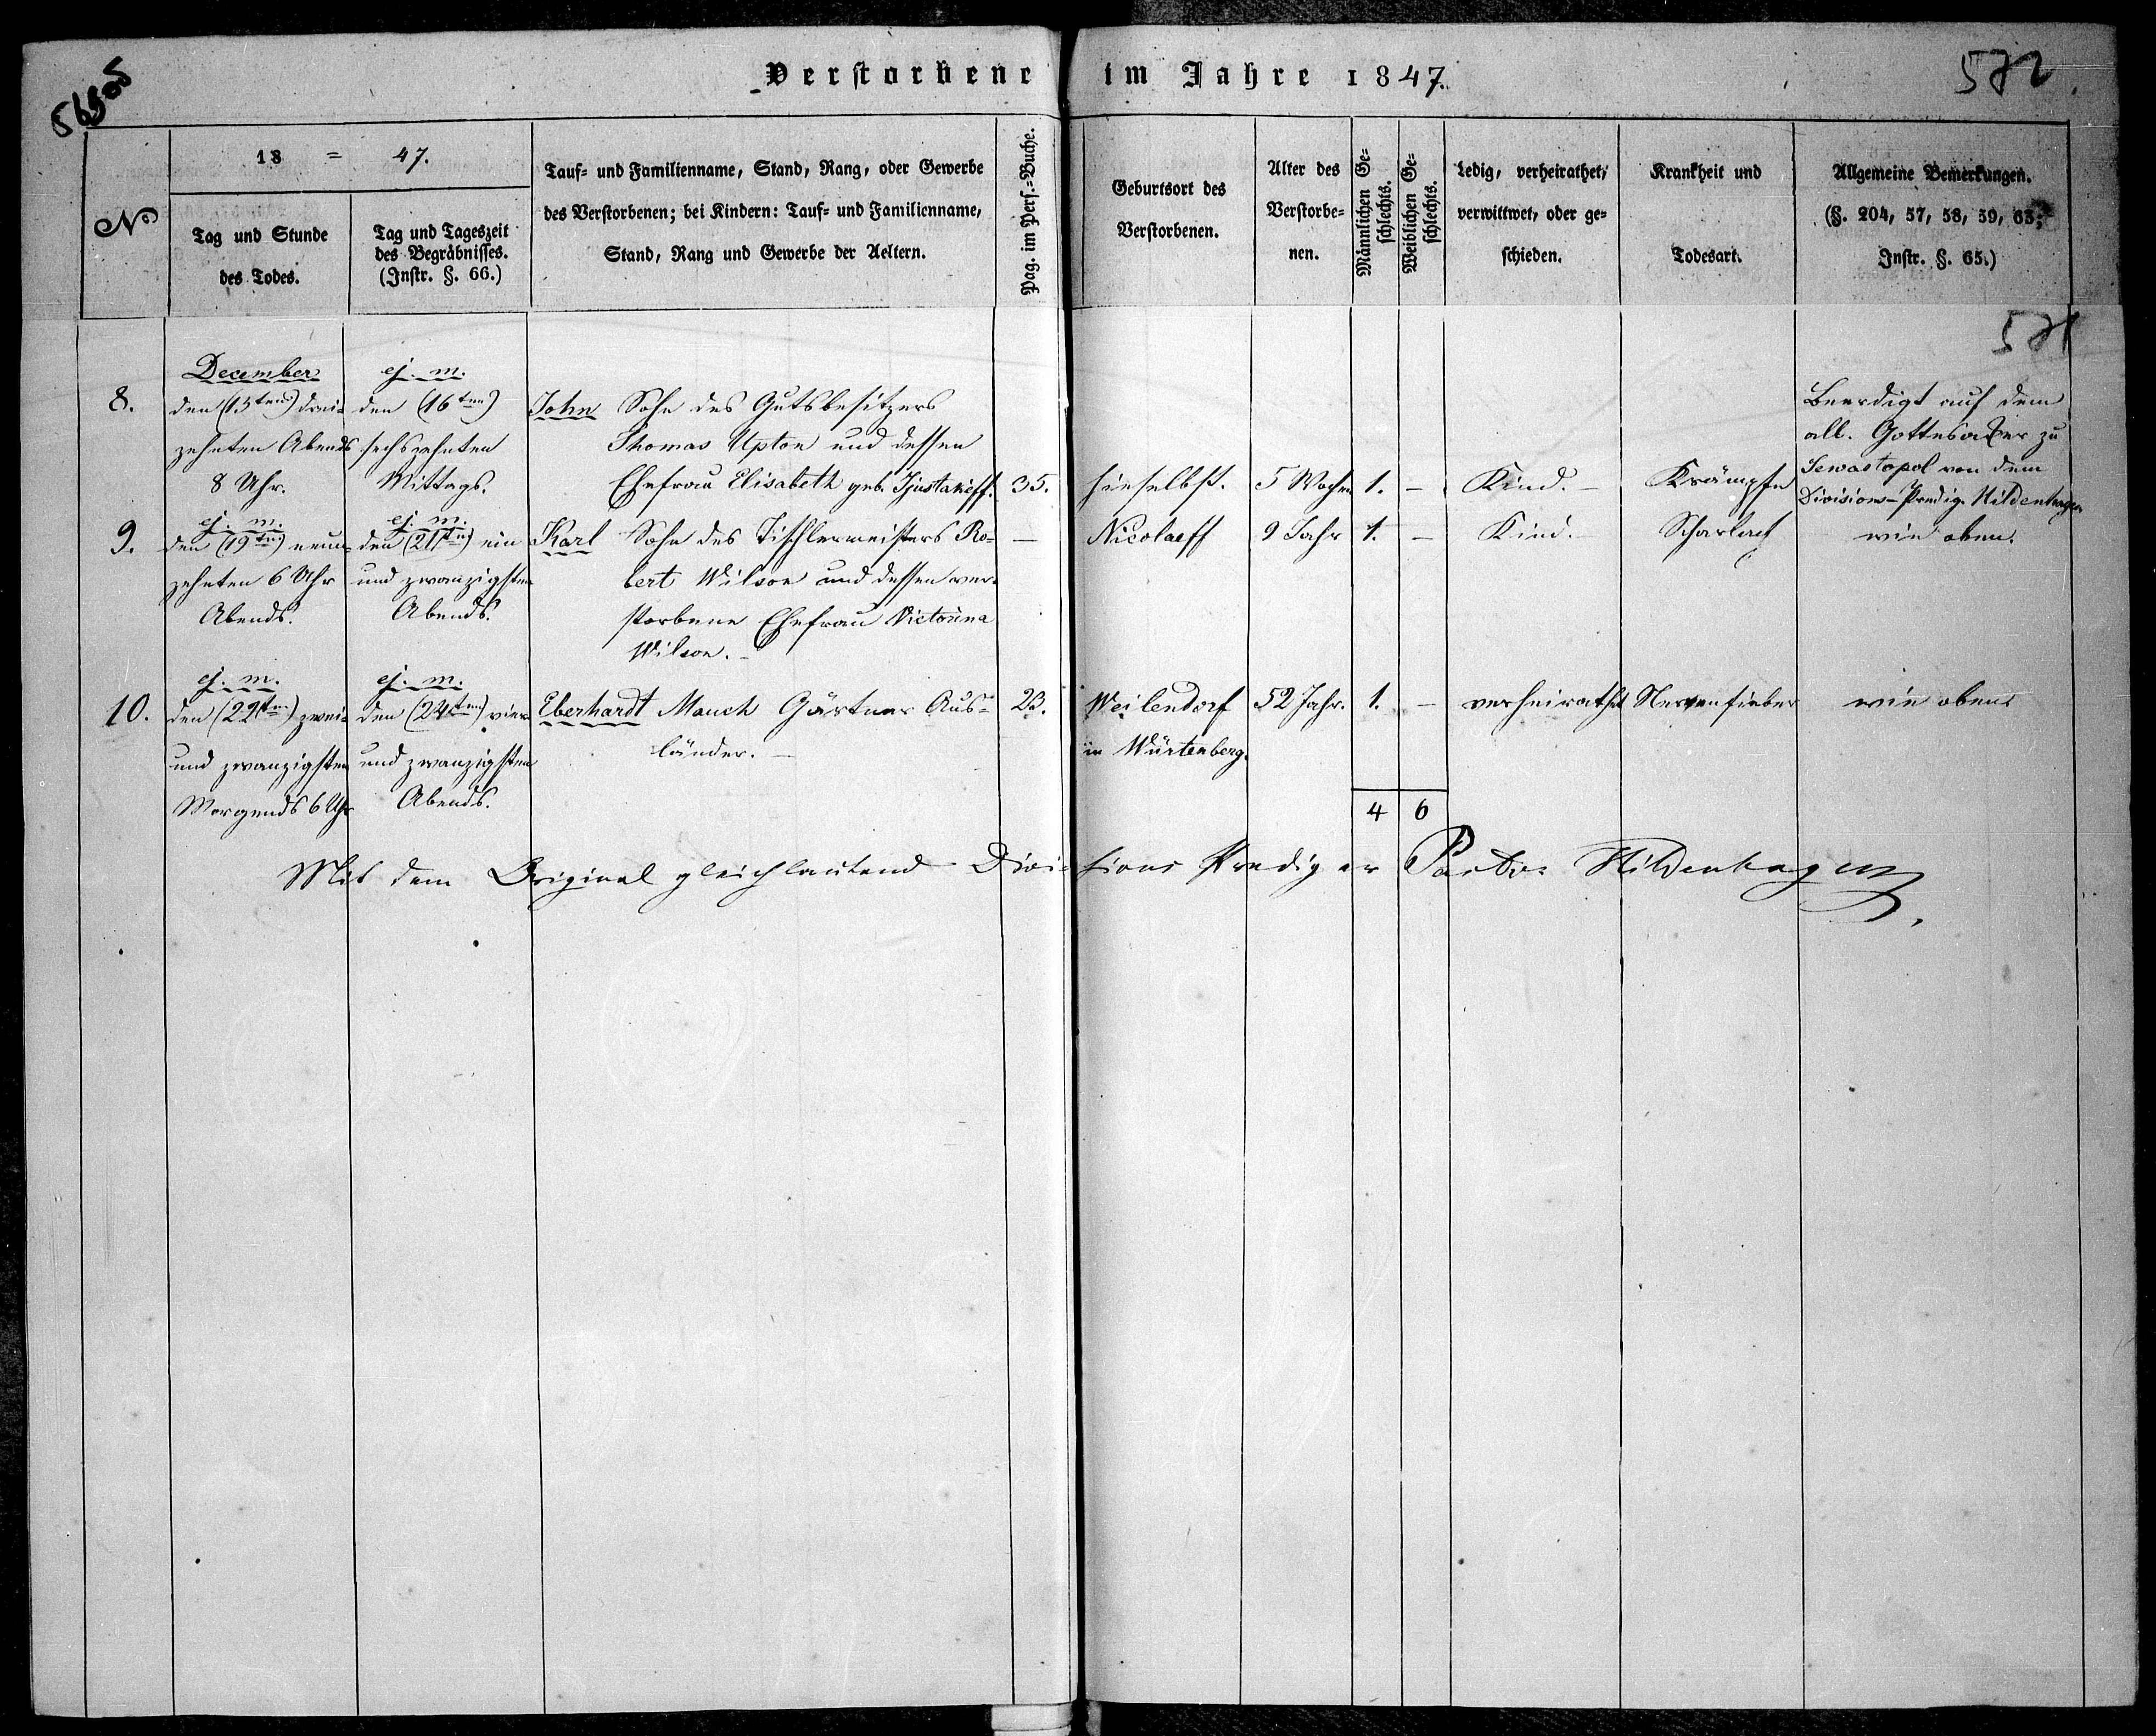 Verstorbene im Jahre 1847.
572
№
18 = 47.
Tag und Stunde
des Todes.
Tag und Tageszeit
des Begräbnisses.
(Instr. §. 66.)
Tauf= und Familienname, Stand, Rang, oder Gewerbe
des Verstorbenen; bei Kindern: Tauf= und Familienname,
Stand, Rang und Gewerbe der Aeltern.
Pag. im Pers.=Buche.
Geburtsort des
Verstorbenen.
Alter des
Verstorbe=
nen.
Männlichen Ge=
schlechts.
Weiblichen Ge=
schlechts.
Ledig, verheirathet,
verwittwet, oder ge=
schieden.
Krankheit und
Todesart.
Allgemeine Bemerkungen.
(§. 204, 57, 58, 59, 63;
Instr. §. 65.)
571
8.
December
den (13ten) drei=
zehnten Abends
8 Uhr.
ej. m.
den (16ten)
sechszehnten
Mittags.
John Sohn des Gutsbesitzers
Thomas Upton und dessen
Ehefrau Elisabeth geb.
35.
hieselbst.
5 Wochen
1.
–
Kind. –
Krämpfe
Beerdigt auf dem
all. Gottesacker zu
Sewastopol von dem
Divisions-Predig. Hildenhagen
9.
ej. m.
den (19ten) neun=
zehnten 6 Uhr
Abends.
ej. m.
den (21ten) ein
und zwanzigsten
Abends.
Karl Sohn des Tischlermeisters Ro=
bert Wilson und dessen ver=
storbene Ehefrau Victorina
Wilson. –
–
Nicolaeff
9 Jahr
1.
–
Kind. –
Scharlach
wie oben.
10.
ej. m.
den (22ten) zwei=
und zwanzigsten
Morgends 6 Uhr
ej. m.
den (24ten) vier
und zwanzigsten
Abends.
Eberhardt Mauch Gärtner Aus=
länder. –
23.
Weilendorf
in Würtenberg.
52 Jahr.
1.
–
verheirathet
Nervenfieber
wie oben
4 6
Mit dem Original gleichlautend Divi=sions Prediger Pastor Hildenhagen